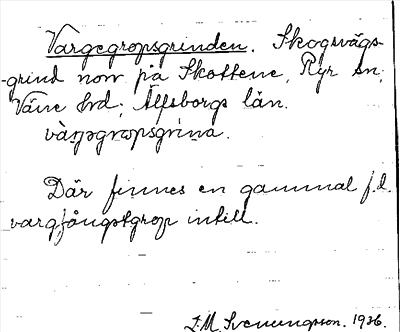 Vargegropsgrinden. Skogsvägs-
-grind norr på Skottene, Ryr sn;
Väne hrd; Älfsborgs län.
Där finnes en gammal f.d.
vargfångstgrop intill.
J.M. Svenungsson. 1926.